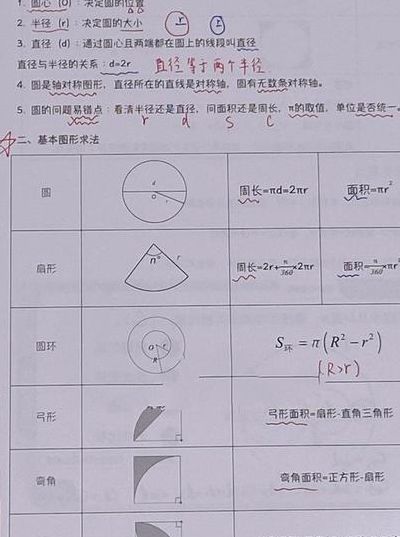 1. 圆心（O）：决定圆的位置
2. 半径（r）：决定圆的大小 r r
3. 直径（d）：通过圆心且两端都在圆上的线段叫直径
直径与半径的关系：d=2r 直径等于两个半径
4. 圆是轴对称图形，直径所在的直线是对称轴，圆有无数条对称轴。
5. 圆的问题易错点：看清半径还是直径，问面积还是周长，π的取值，单位是否统一。
r d S C
二、基本图形求法
圆 d O r 周长=πd=2πr 面积=πr²
扇形 n° r 周长=2r+n/360×2πr 面积=n/360×πr
圆环 O r R S环 = π(R² − r²)
(R>r)
弓形 弓形面积=扇形-直角三角形
弯角 弯角面积=正方形-扇形